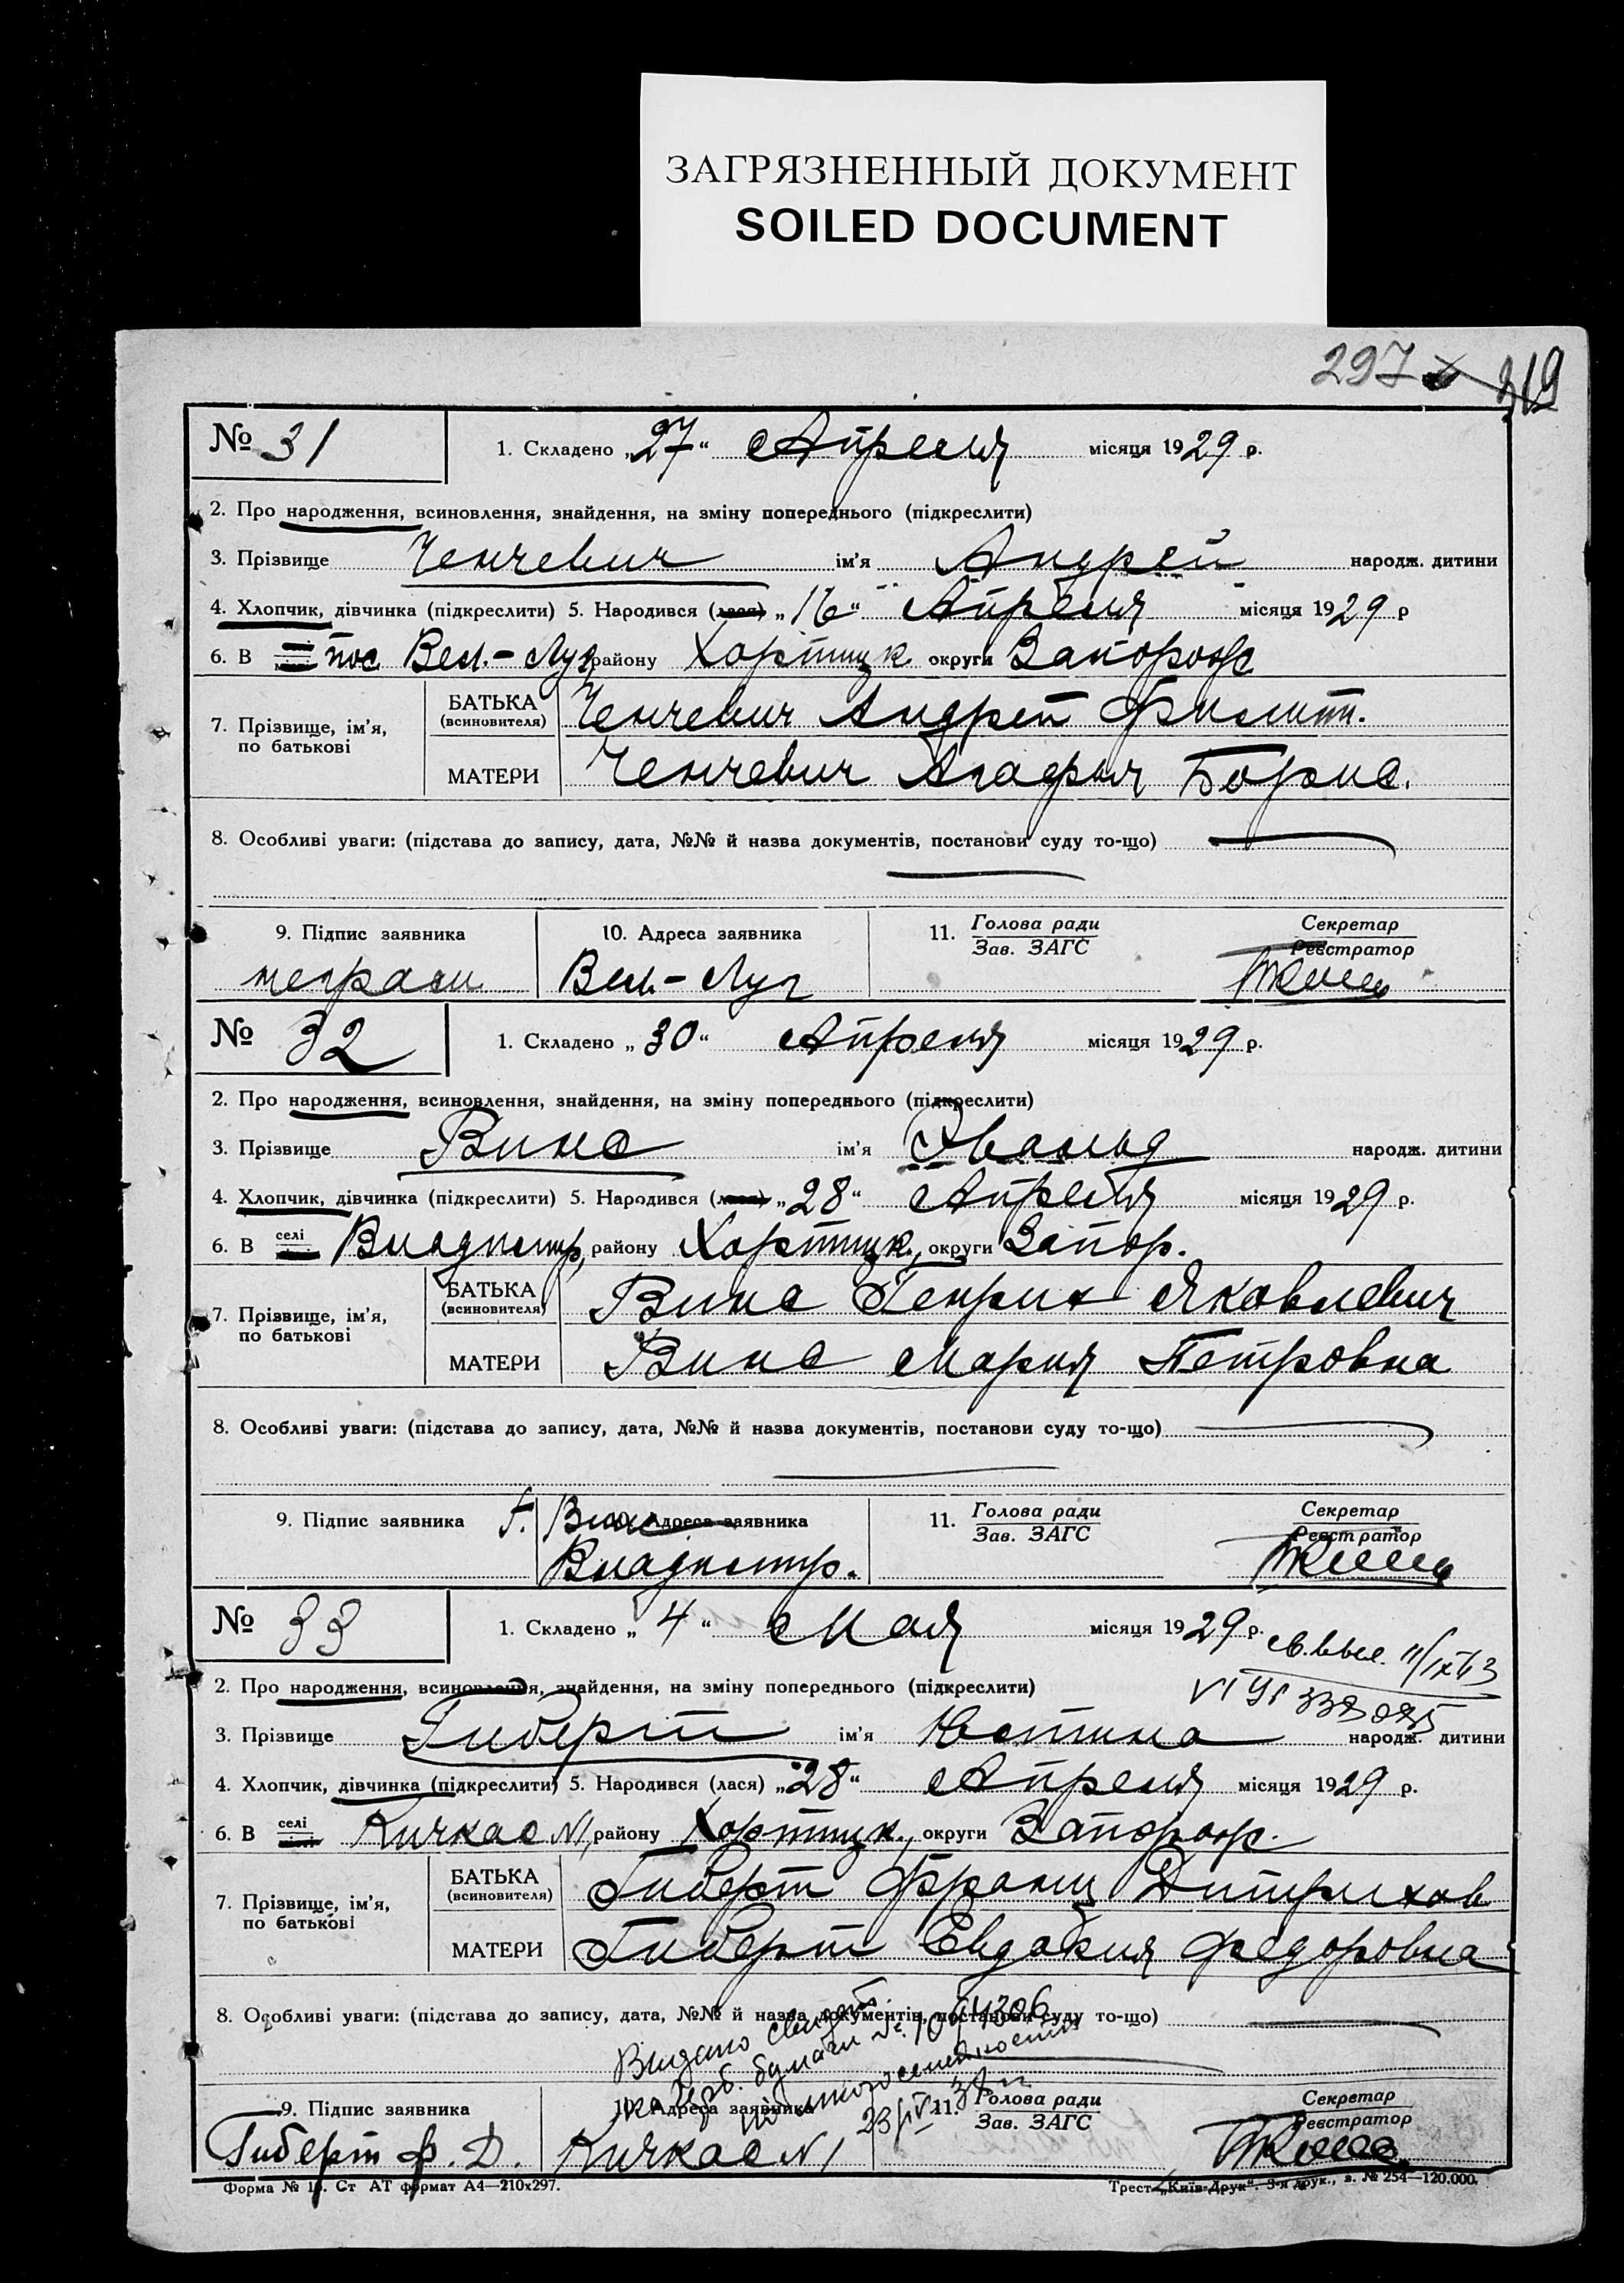 ЗАГРЯЗНЕННЫЙ ДОКУМЕНТ
SOILED DOCUMENT
297 319
№ 31 1. Складено „27“ Апреля місяця 1929 р.
2. Про народження, всиновлення, знайдення, на зміну попереднього (підкреслити)
3. Прізвище Ченчевич ім'я Андрей народж. дитини
4. Хлопчик, дівчинка (підкреслити) 5. Народився (лася) „16“ Апреля місяця 1929 р
6. В пос. Вел.-Луг району Хортицк. округи Запорож
7. Прізвище, ім'я, по батькові БАТЬКА (всиновителя) Ченчевич Андрей Филипп.
МАТЕРИ Ченчевич Агафья Борис.
8. Особливі уваги: (підстава до запису, дата, №№ й назва документів, постанови суду то-що)
9. Підпис заявника 10. Адреса заявника 11. Голова ради Зав. ЗАГС Секретар Реєстратор
неграм. Вел.-Луг
№ 32 1. Складено „30“ Апреля місяця 1929 р.
2. Про народження, всиновлення, знайдення, на зміну попереднього (підкреслити)
3. Прізвище Винс ім'я Эвальд народж. дитини
4. Хлопчик, дівчинка (підкреслити) 5. Народився (лася) „28“ Апреля місяця 1929 р.
6. В селі Владимир, району Хортицк., округи Запор.
7. Прізвище, ім'я, по батькові БАТЬКА (всиновителя) Винс Генрих Яковлевич
МАТЕРИ Винс Мария Петровна
8. Особливі уваги: (підстава до запису, дата, №№ й назва документів, постанови суду то-що)
9. Підпис заявника 10. Адреса заявника 11. Голова ради Зав. ЗАГС Секретар Реєстратор
Винс
Владимир.
№ 33 1. Складено „4“ Мая місяця 1929 р.
2. Про народження, всиновлення, знайдення, на зміну попереднього (підкреслити)
3. Прізвище Гиберт ім'я Юстина народж. дитини
4. Хлопчик, дівчинка (підкреслити) 5. Народився (лася) „28“ Апреля місяця 1929 р.
6. В селі Кичкас N1, району Хортицк., округи Запорож.
7. Прізвище, ім'я, по батькові БАТЬКА (всиновителя) Гиберт Франц Дитрихов
МАТЕРИ Гиберт Евдокия Федоровна
8. Особливі уваги: (підстава до запису, дата, №№ й назва документів, постанови суду то-що)
Видано свидет.
на герб. бумаги № 1064306
по многосемейности
9. Підпис заявника 10. Адреса заявника 11. Голова ради Зав. ЗАГС Секретар Реєстратор
Гиберт Ф. Д. Кичкас N1
Форма № 1. Ст АТ формат А4—210х297. Трест „Київ-Друк“. 3-я друк., з. № 254—120.000.